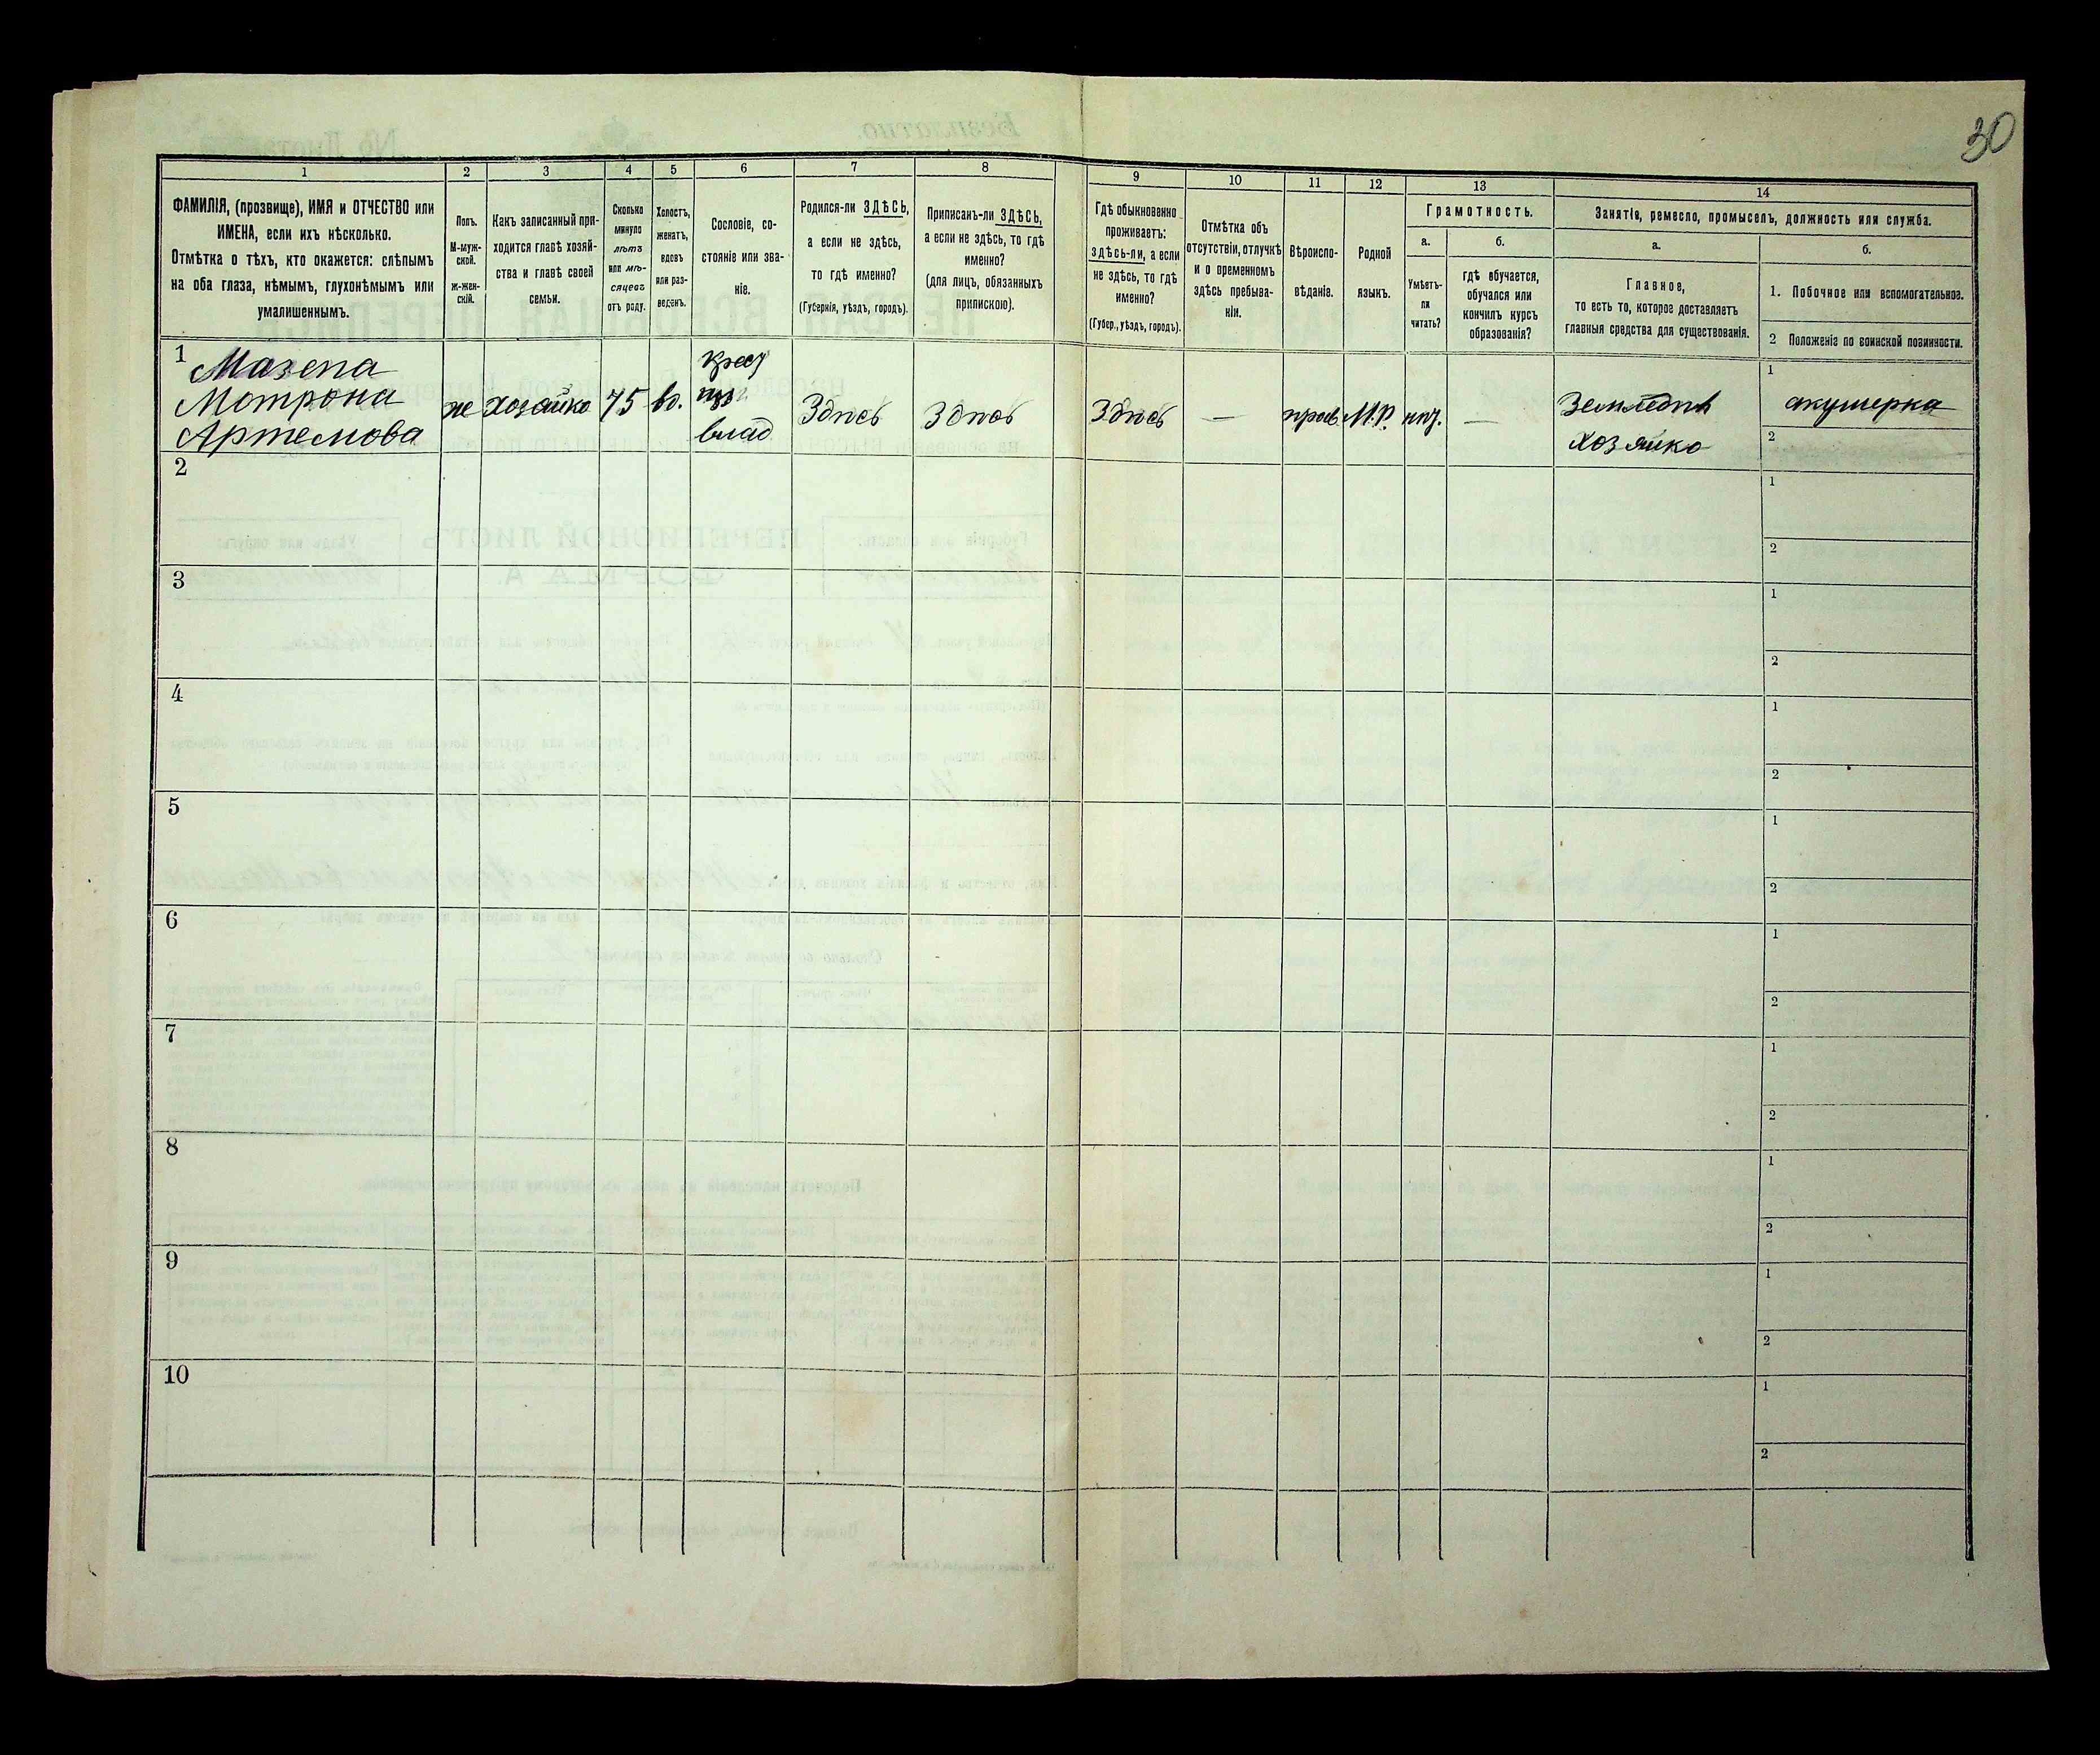 30
1
2
3
4
5
6
7
8
9
10
11
12
13
14
ФАМИЛІЯ, (прозвище), ИМЯ и ОТЧЕСТВО или
ИМЕНА, если ихъ нѣсколько.
Отмѣтка о тѣхъ, кто окажется: слѣпымъ
на оба глаза, нѣмымъ, глухонѣмымъ или
умалишеннымъ.
Полъ.
М-муж-
ской.
ж-жен-
скій.
Какъ записанный при-
ходится главѣ хозяй-
ства и главѣ своей
семьи.
Сколько
минуло
лѣтъ
или мѣ-
сяцевъ
отъ роду.
Холостъ,
женатъ,
вдовъ
или раз-
веденъ.
Сословіе, со-
стояніе или зва-
ніе.
Родился-ли ЗДѢСЬ,
а если не здѣсь,
то гдѣ именно?
(Губернія, уѣздъ, городъ).
Приписанъ-ли ЗДѢСЬ,
а если не здѣсь, то гдѣ
именно?
(для лицъ, обязанныхъ
припискою).
Гдѣ обыкновенно
проживаетъ:
ЗДѢСЬ-ли, а если
не здѣсь, то гдѣ
именно?
(Губер., уѣздъ, городъ).
Отмѣтка объ
отсутствіи, отлучкѣ
и о временномъ
здѣсь пребыва-
ніи.
Вѣроиспо-
вѣданіе.
Родной
языкъ.
Грамотность.
а.
Умѣетъ-
ли
читать?
б.
гдѣ обучается,
обучался или
кончилъ курсъ
образованія?
Занятіе, ремесло, промыселъ, должность или служба.
а.
Главное,
то есть то, которое доставляетъ
главныя средства для существованія.
б.
1. Побочное или вспомогательное.
2 Положеніе по воинской повинности.
1
Мазепа
Мотрона
Артемова
же
хозяйка
75
вд.
крест
влад
Здѣсь
Здѣсь
Здѣсь
—
прав
М.Р.
—
Земледѣл
хозяйка
1
акушерка
2
2
1
2
3
1
2
4
1
2
5
1
2
6
1
2
7
1
2
8
1
2
9
1
2
10
1
2